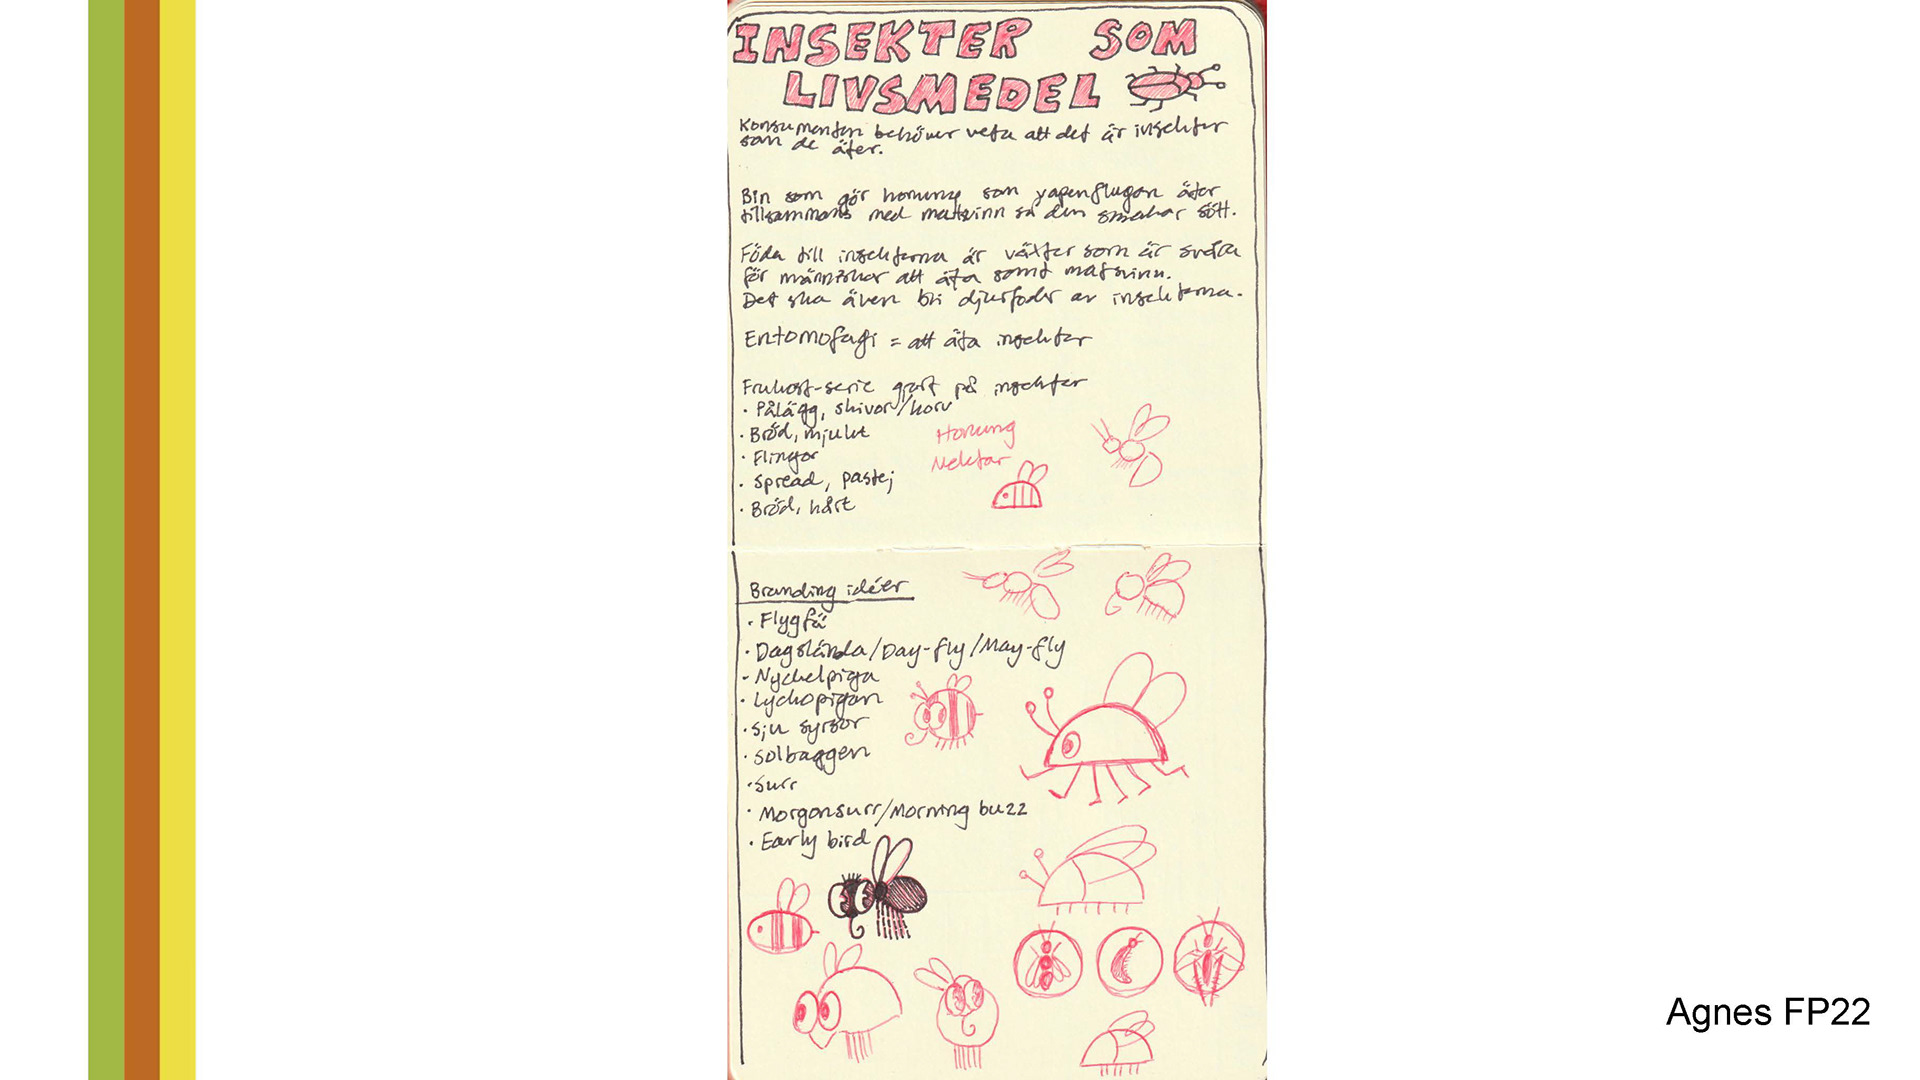 INSEKTER SOM
LIVSMEDEL
Konsumenten behöver veta att det är insekter
som de äter.
Bin som gör honung som vapenflugan äter
tillsammans med matsvinn så den smakar sött.
Föda till insekterna är växter som är svåra
för människor att äta samt matsvinn.
Det ska även bli djurfoder av insekterna.
Entomofagi = att äta insekter
Frukost-serie gjort på insekter
· Pålägg, skivor/korv
· Bröd, mjukt
· Flingor
· Spread, pastej
· Bröd, hårt
Honung
Nektar
Branding idéer
· Flygfä
· Dagslända/Day-fly/May-fly
· Nyckelpiga
· Lyckopigan
· Sju syrsor
· Solbaggen
· Surr
· Morgonsurr/Morning buzz
· Early bird
Agnes FP22